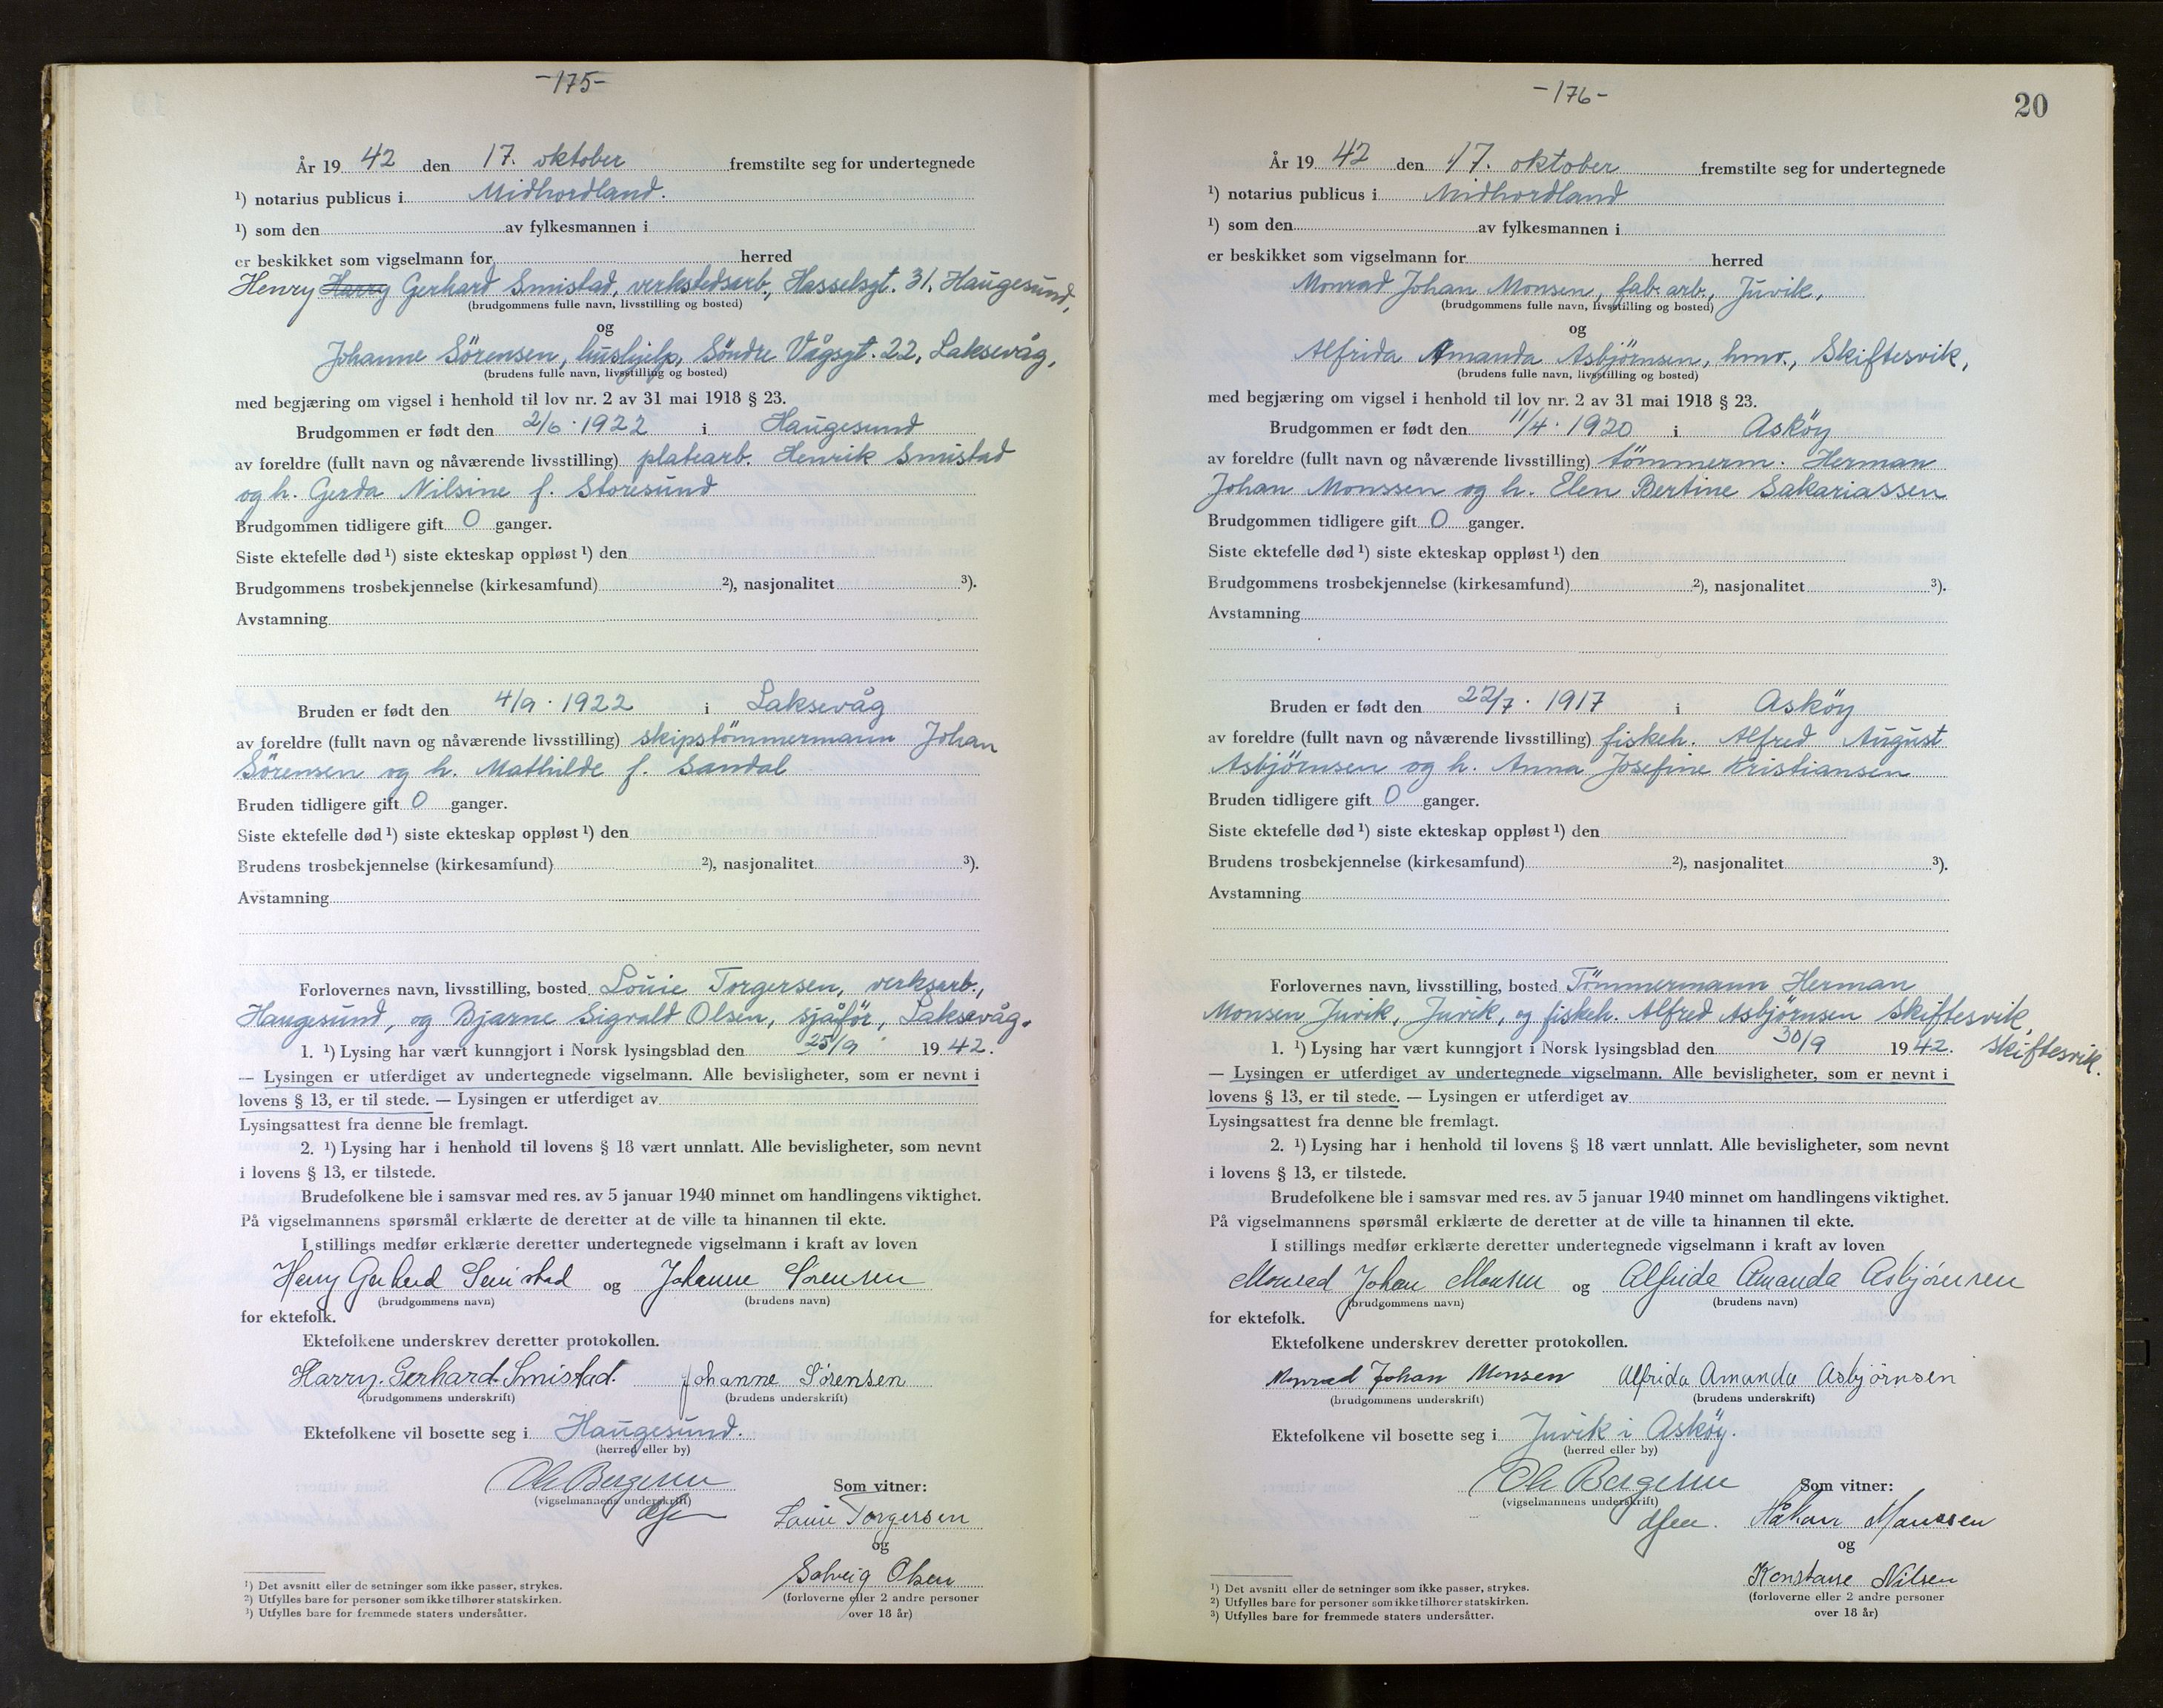 -175-
År 19 42 den 17. oktober fremstilte seg for undertegnede
¹) notarius publicus i Midhordland.
¹) som den av fylkesmannen i
er beskikket som vigselmann for herred
Henry Harry Gerhard Smistad, verkstedsarb., Hasselsgt. 31, Haugesund,
(brudgommens fulle navn, livsstilling og bosted)
og
Johanne Sörensen, hushjelp, Söndre Vågsgt. 22, Laksevåg,
(brudens fulle navn, livsstilling og bosted)
med begjæring om vigsel i henhold til lov nr. 2 av 31 mai 1918 § 23.
Brudgommen er født den 2/6 · 1922 i Haugesund
av foreldre (fullt navn og nåværende livsstilling) platearb. Henrik Smistad
og h. Gerda Nilsine f. Storesund
Brudgommen tidligere gift 0 ganger.
Siste ektefelle død ¹) siste ekteskap oppløst ¹) den
Brudgommens trosbekjennelse (kirkesamfund) ²), nasjonalitet ³).
Avstamning
Bruden er født den 4/9 · 1922 i Laksevåg
av foreldre (fullt navn og nåværende livsstilling) skipstömmermann Johan
Sörensen og h. Mathilde f. Sandal
Bruden tidligere gift 0 ganger.
Siste ektefelle død ¹) siste ekteskap oppløst ¹) den
Brudens trosbekjennelse (kirkesamfund) ²), nasjonalitet ³).
Avstamning
Forlovernes navn, livsstilling, bosted Louie Torgersen, verksarb.,
Haugesund, og Bjarne Sigvald Olsen, sjåför, Laksevåg.
1. ¹) Lysing har vært kunngjort i Norsk lysingsblad den 25/9 19 42.
— Lysingen er utferdiget av undertegnede vigselmann. Alle bevisligheter, som er nevnt i
lovens § 13, er til stede. — Lysingen er utferdiget av
Lysingsattest fra denne ble fremlagt.
2. ¹) Lysing har i henhold til lovens § 18 vært unnlatt. Alle bevisligheter, som nevnt
i lovens § 13, er tilstede.
Brudefolkene ble i samsvar med res. av 5 januar 1940 minnet om handlingens viktighet.
På vigselmannens spørsmål erklærte de deretter at de ville ta hinannen til ekte.
I stillings medfør erklærte deretter undertegnede vigselmann i kraft av loven
Gerhard Smistad og Johanne Sörensen
(brudgommens navn) (brudens navn)
for ektefolk.
Ektefolkene underskrev deretter protokollen.
Harry. Gerhard. Smistad. Johanne Sørensen
(brudgommens underskrift) (brudens underskrift)
Ektefolkene vil bosette seg i Haugesund.
(herred eller by)
Ole Bergesen
(vigselmannens underskrift)
Som vitner:
Louie Torgersen
og
Solveig Olsen
(forloverne eller 2 andre personer
over 18 år)
¹) Det avsnitt eller de setninger som ikke passer, strykes.
²) Utfylles bare for personer som ikke tilhører statskirken.
³) Utfylles bare for fremmede staters undersåtter.
-176-
20
År 19 42 den 17. oktober fremstilte seg for undertegnede
¹) notarius publicus i Midhordland
¹) som den av fylkesmannen i
er beskikket som vigselmann for herred
Monrad Johan Monsen, fab.arb., Juvik,
(brudgommens fulle navn, livsstilling og bosted)
og
Alfrida Amanda Asbjörnsen, hmv., Skiftesvik,
(brudens fulle navn, livsstilling og bosted)
med begjæring om vigsel i henhold til lov nr. 2 av 31 mai 1918 § 23.
Brudgommen er født den 11/4 · 1920 i Asköy
av foreldre (fullt navn og nåværende livsstilling) tömmerm. Herman
Johan Monssen og h. Elen Bertine Sakariassen
Brudgommen tidligere gift 0 ganger.
Siste ektefelle død ¹) siste ekteskap oppløst ¹) den
Brudgommens trosbekjennelse (kirkesamfund) ²), nasjonalitet ³).
Avstamning
Bruden er født den 22/7 · 1917 i Asköy
av foreldre (fullt navn og nåværende livsstilling) fiskeh. Alfred August
Asbjörnsen og h. Anna Josefine Kristiansen
Bruden tidligere gift 0 ganger.
Siste ektefelle død ¹) siste ekteskap oppløst ¹) den
Brudens trosbekjennelse (kirkesamfund) ²), nasjonalitet ³).
Avstamning
Forlovernes navn, livsstilling, bosted Tömmermann Herman
Monsen Juvik, Juvik, og fiskeh. Alfred Asbjörnsen Skiftesvik,
1. ¹) Lysing har vært kunngjort i Norsk lysingsblad den 30/9 19 42. Skiftesvik.
— Lysingen er utferdiget av undertegnede vigselmann. Alle bevisligheter, som er nevnt i
lovens § 13, er til stede. — Lysingen er utferdiget av
Lysingsattest fra denne ble fremlagt.
2. ¹) Lysing har i henhold til lovens § 18 vært unnlatt. Alle bevisligheter, som nevnt
i lovens § 13, er tilstede.
Brudefolkene ble i samsvar med res. av 5 januar 1940 minnet om handlingens viktighet.
På vigselmannens spørsmål erklærte de deretter at de ville ta hinannen til ekte.
I stillings medfør erklærte deretter undertegnede vigselmann i kraft av loven
Monrad Johan Monsen og Alfrida Amanda Asbjörnsen
(brudgommens navn) (brudens navn)
for ektefolk.
Ektefolkene underskrev deretter protokollen.
Monrad Johan Monsen Alfrida Amanda Asbjörnsen
(brudgommens underskrift) (brudens underskrift)
Ektefolkene vil bosette seg i Juvik i Asköy.
(herred eller by)
Ole Bergesen
(vigselmannens underskrift)
Som vitner:
Håkon Monssen
og
Konstanse Nilsen
(forloverne eller 2 andre personer
over 18 år)
¹) Det avsnitt eller de setninger som ikke passer, strykes.
²) Utfylles bare for personer som ikke tilhører statskirken.
³) Utfylles bare for fremmede staters undersåtter.